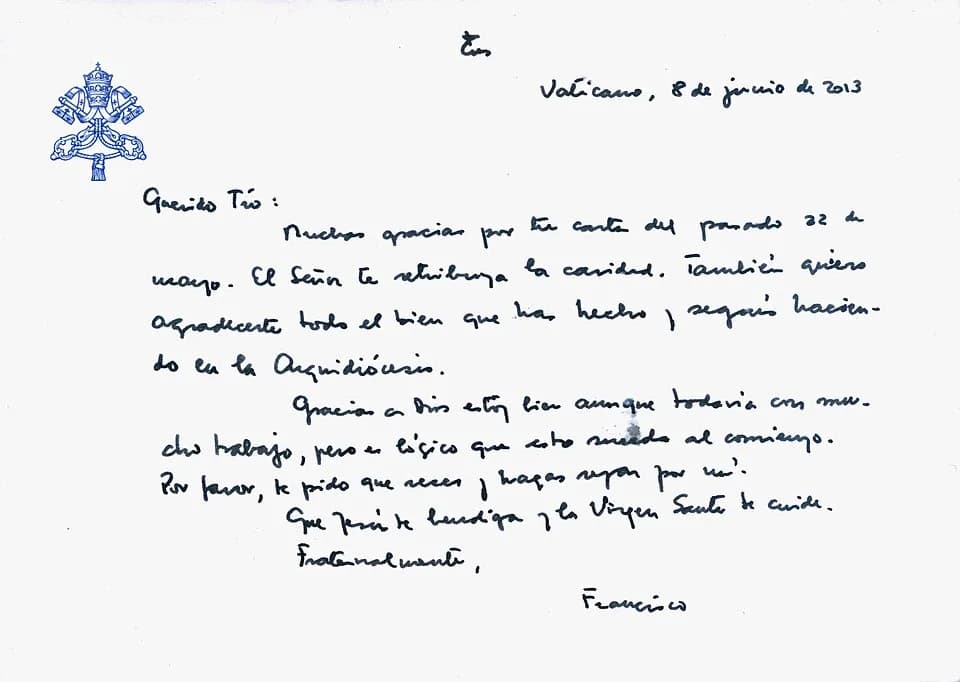 Vaticano, 8 de junio de 2013
Querido Tío:
Muchas gracias por tu carta del pasado 22 de
mayo. El Señor te retribuya la caridad. También quiero
agradecerte todo el bien que has hecho y seguís hacien-
do en la Arquidiócesis.
Gracias a Dios estoy bien aunque todavía con mu-
cho trabajo, pero es lógico que esto suceda al comienzo.
Por favor, te pido que reces y hagas rezar por mí.
Que Jesús te bendiga y la Virgen Santa te cuide.
Fraternalmente,
Francisco